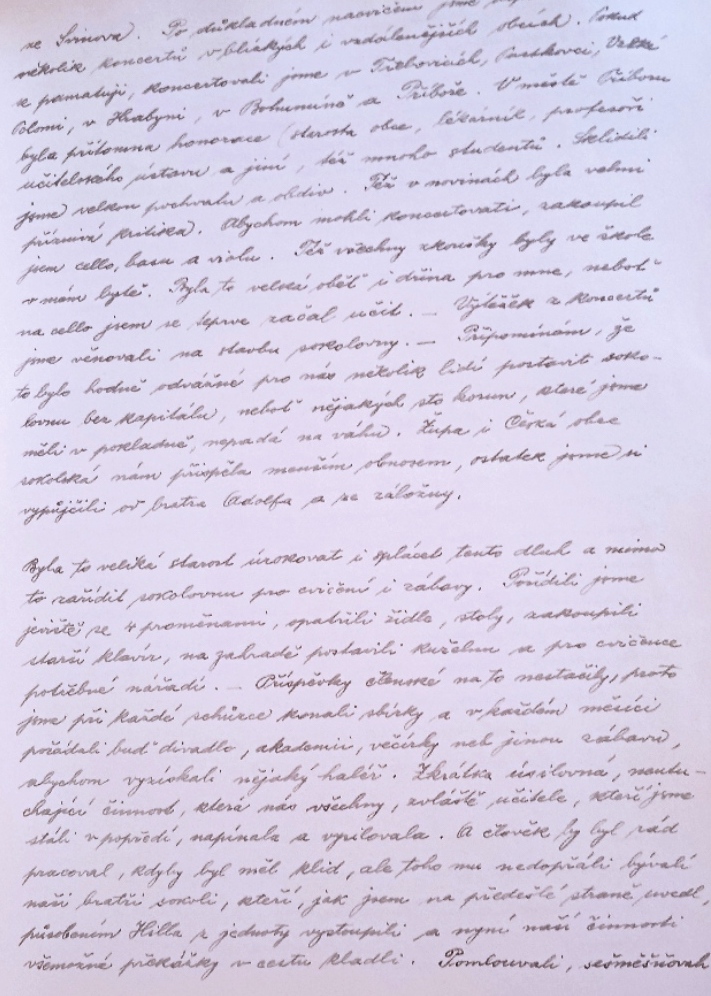 ze Svinova. Po důkladném nacvičení jsme
několik koncertů v blízkých i vzdálenějších obcích. Pokud
se pamatuji, koncertovali jsme v Těrlovicích, Paskovci, Velké
Polomi, v Hrabyni, v Bohumíně a Příboře. V městě Příboru
byla přítomna honorace (starosta obce, lékárník, profesoři
učitelského ústavu a jiní, též mnoho studentů. Sklidili
jsme velkou pochvalu a obdiv. Též v novinách byla velmi
příznivá kritika. Abychom mohli koncertovati, zakoupil
jsem cello, basu a violu. Též všechny zkoušky byly ve škole
v mém bytě. Byla to velká oběť i dřina pro mne, neboť
na cello jsem se teprve začal učit. — Výtěžek z koncertů
jsme věnovali na stavbu sokolovny. — Připomínám, že
to bylo hodně odvážné pro nás několik lidí postavit soko-
lovnu bez kapitálu, neboť nějakých sto korun, které jsme
měli v pokladně, nepadá na váhu. Župa i Česká obec
sokolská nám přispěla menším obnosem, ostatek jsme si
vypůjčili od bratra Adolfa a ze záložny.

Byla to veliká starost úrokovat i splácet tento dluh a mimo
to zařídit sokolovnu pro cvičení i zábavy. Pořídili jsme
jeviště se 4 proměnami, opatřili židle, stoly, zakoupili
starší klavír, na zahradě postavili kuželnu a pro cvičence
potřebné nářadí. — Příspěvky členské na to nestačily, proto
jsme při každé schůzce konali sbírky a v každém měsíci
pořádali buď divadlo, akademii, večírky neb jinou zábavu,
abychom vyzískali nějaký haléř. Zkrátka úsilovná, neutu-
chající činnost, která nás všechny, zvláště učitele, kteří jsme
stáli v popředí, napínala a vysilovala. A člověk by byl rád
pracoval, kdyby byl měl klid, ale toho mu nedopřáli bývalí
naši bratři sokoli, kteří, jak jsem na předešlé straně uvedl,
působením Hilla z jednoty vystoupili a nyní naší činnosti
všemožné překážky v cestu kladli. Pomlouvali, sesměšňovali